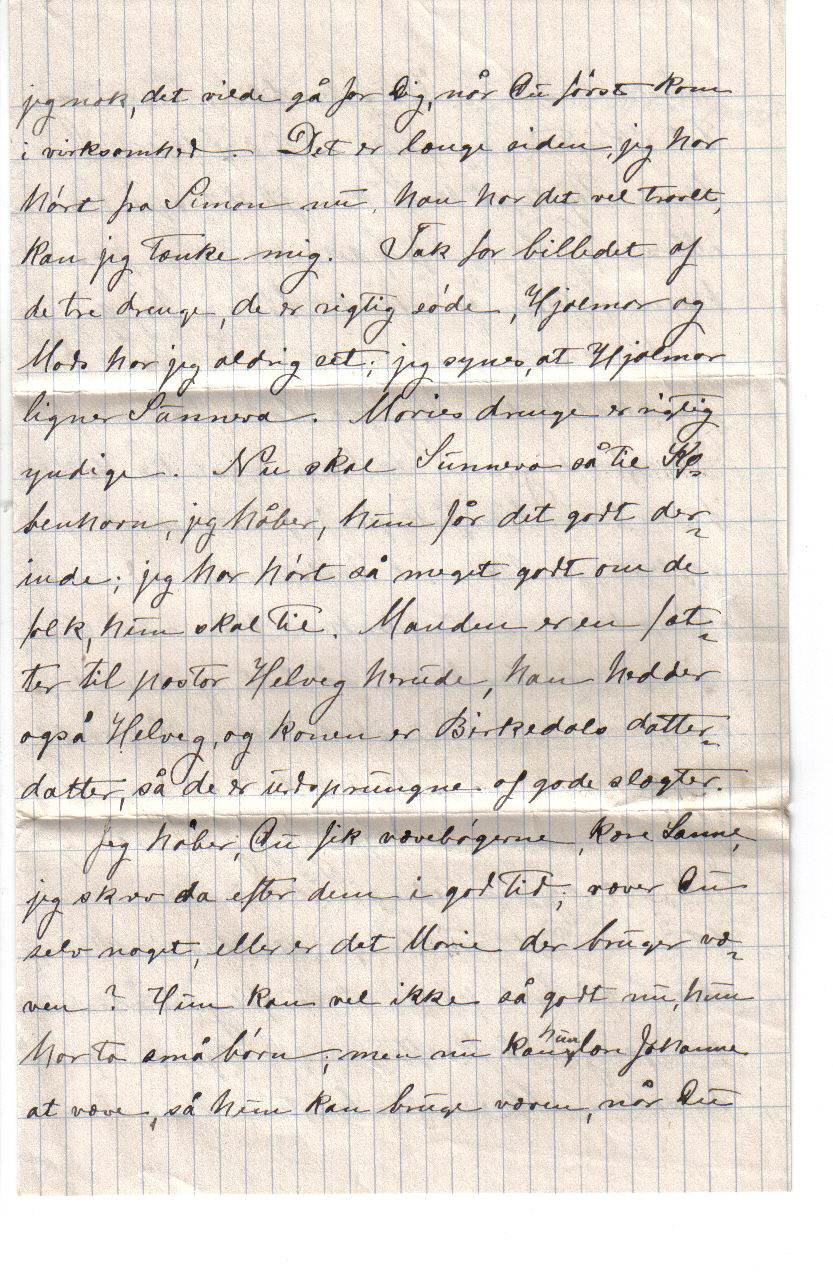 jeg nok, det vilde gå for Dig, når Du först kom
i virksomhed. Det er længe siden, jeg har
hört fra Simon nu, han har det vel travlt,
kan jeg tænke mig. Tak for billedet af
de tre drenge, de er rigtig söde, Hjalmar og
Mads har jeg aldrig set; jeg synes, at Hjalmar
ligner Sunneva. Maries drenge er rigtig
yndige. Nu skal Sunneva så til Kø-
benhavn, jeg håber, hun får det godt der-
inde; jeg har hört så meget godt om de
folk, hun skal til. Manden er en fæt-
ter til pastor Helveg herude, han hedder
også Helveg, og konen er Birkedals datter-
datter, så de er udsprungne af gode slægter.
Jeg håber, Du fik vævebögerne, kære Sanne,
jeg skrev da efter dem i god tid; væver Du
selv noget, eller er det Marie der bruger væ-
ven? Hun kan vel ikke så godt nu, hun
har to små börn; men nu kan hun lære Johanne
at væve, så hun kan bruge væven, når Du